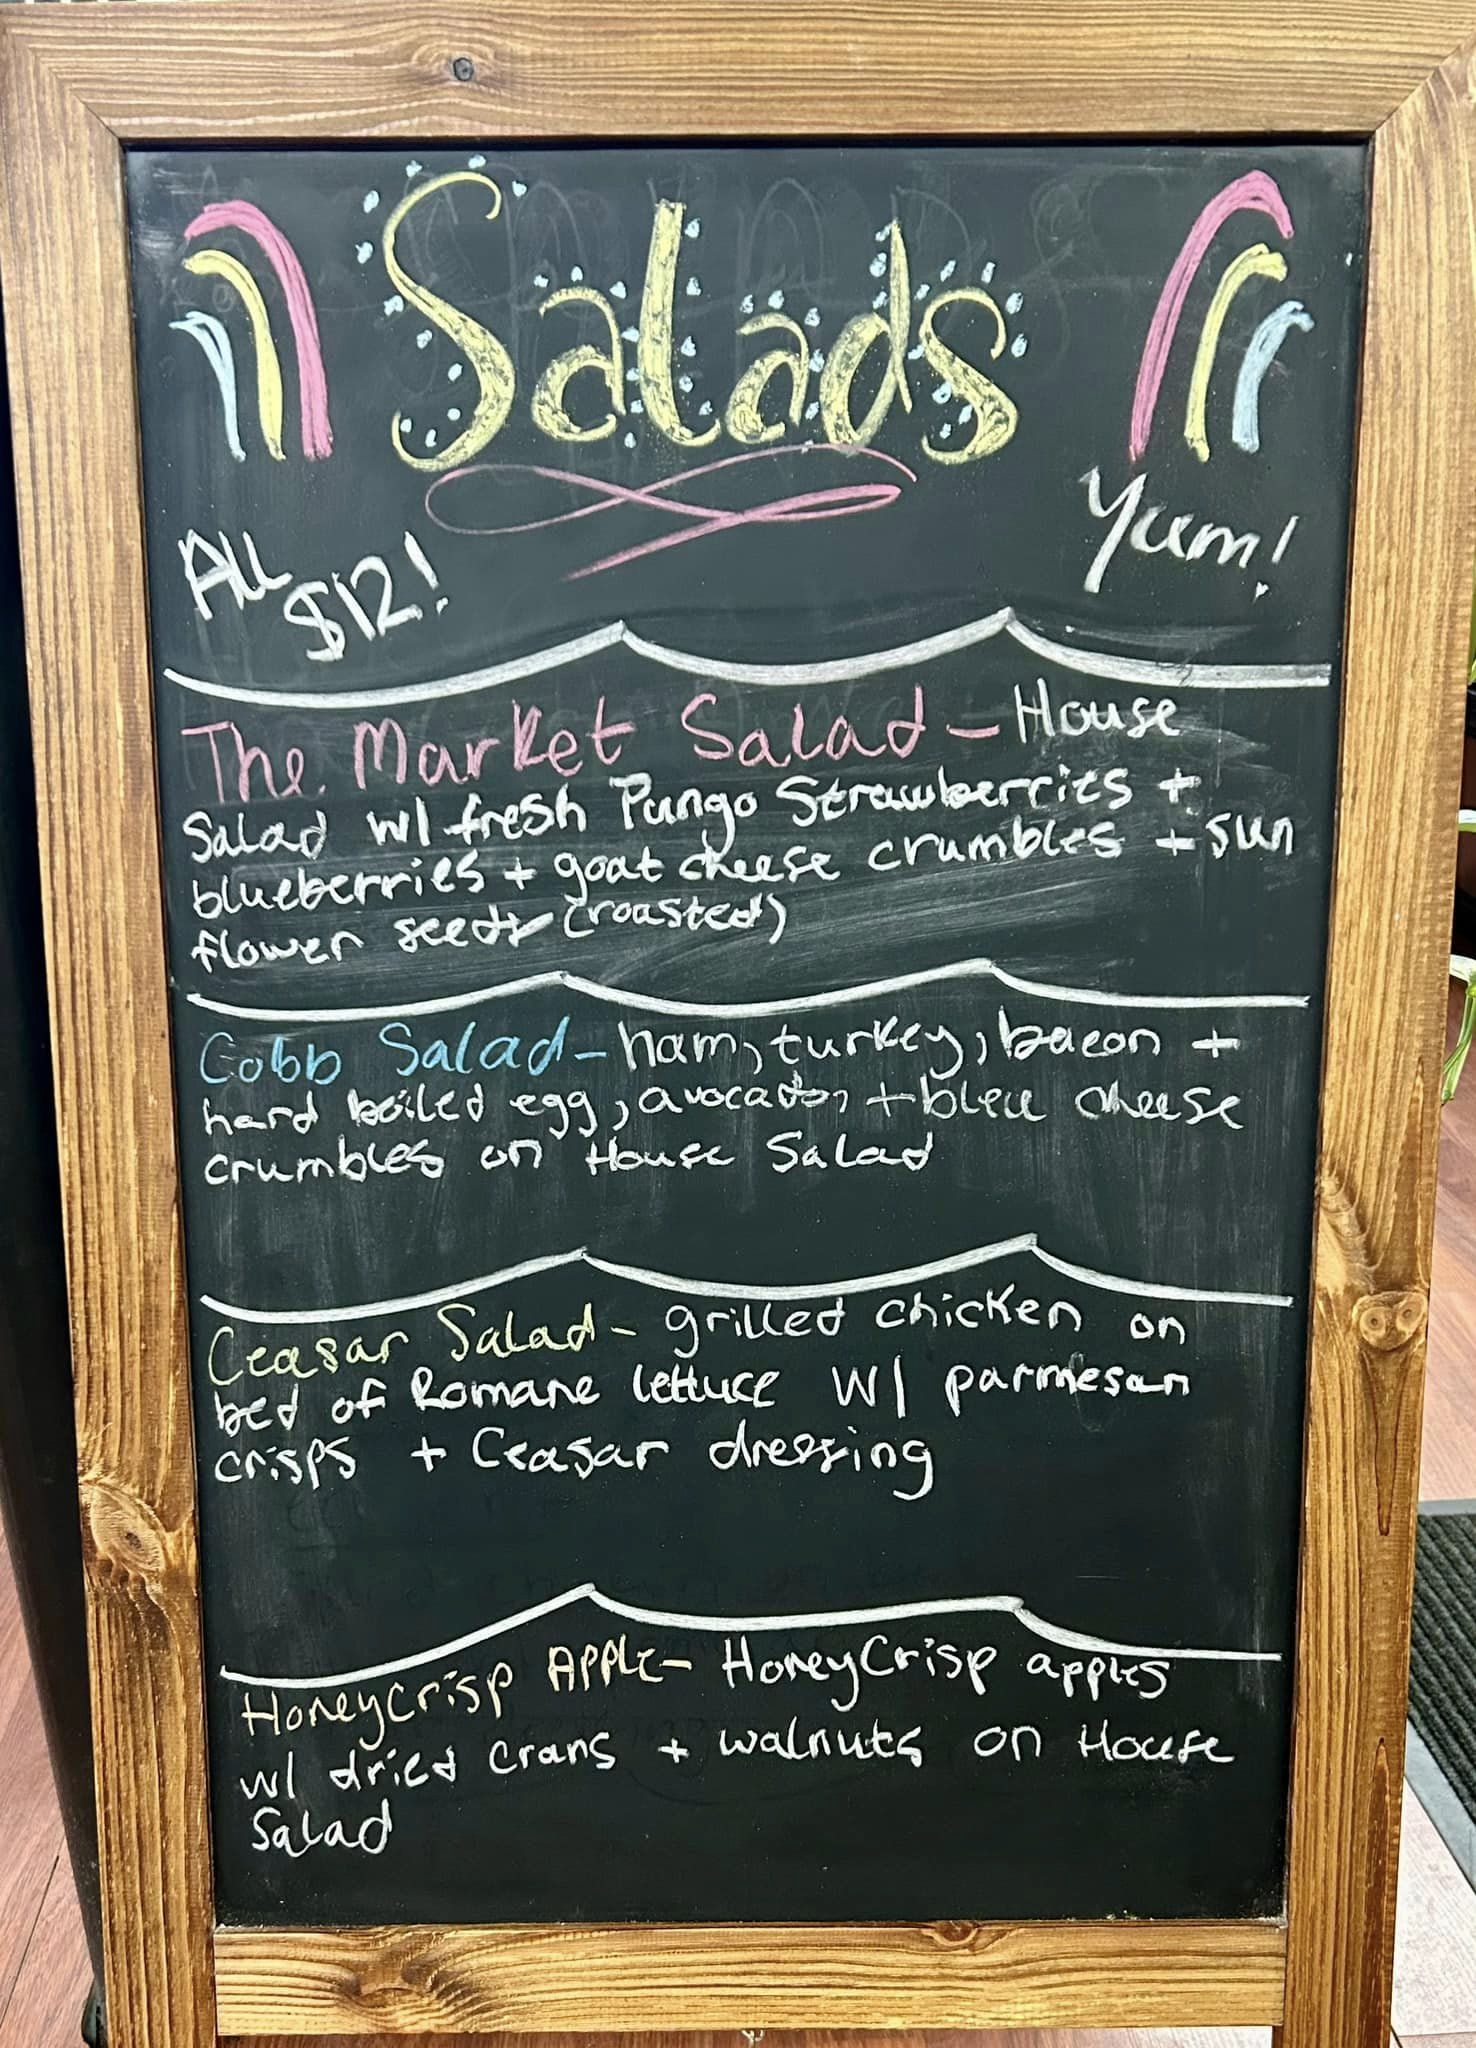 Salads
All
$12!
Yum!
The Market Salad - House
Salad w/ fresh Pungo Strawberries +
blueberries + goat cheese crumbles + sun
flower seeds (roasted)
Cobb Salad - ham, turkey, bacon +
hard boiled egg, avocado, + bleu cheese
crumbles on House Salad
Ceasar Salad - grilled chicken on
bed of Romane lettuce w/ parmesan
crisps + Ceasar dressing
HoneyCrisp Apple - HoneyCrisp apples
w/ dried crans + walnuts on House
Salad